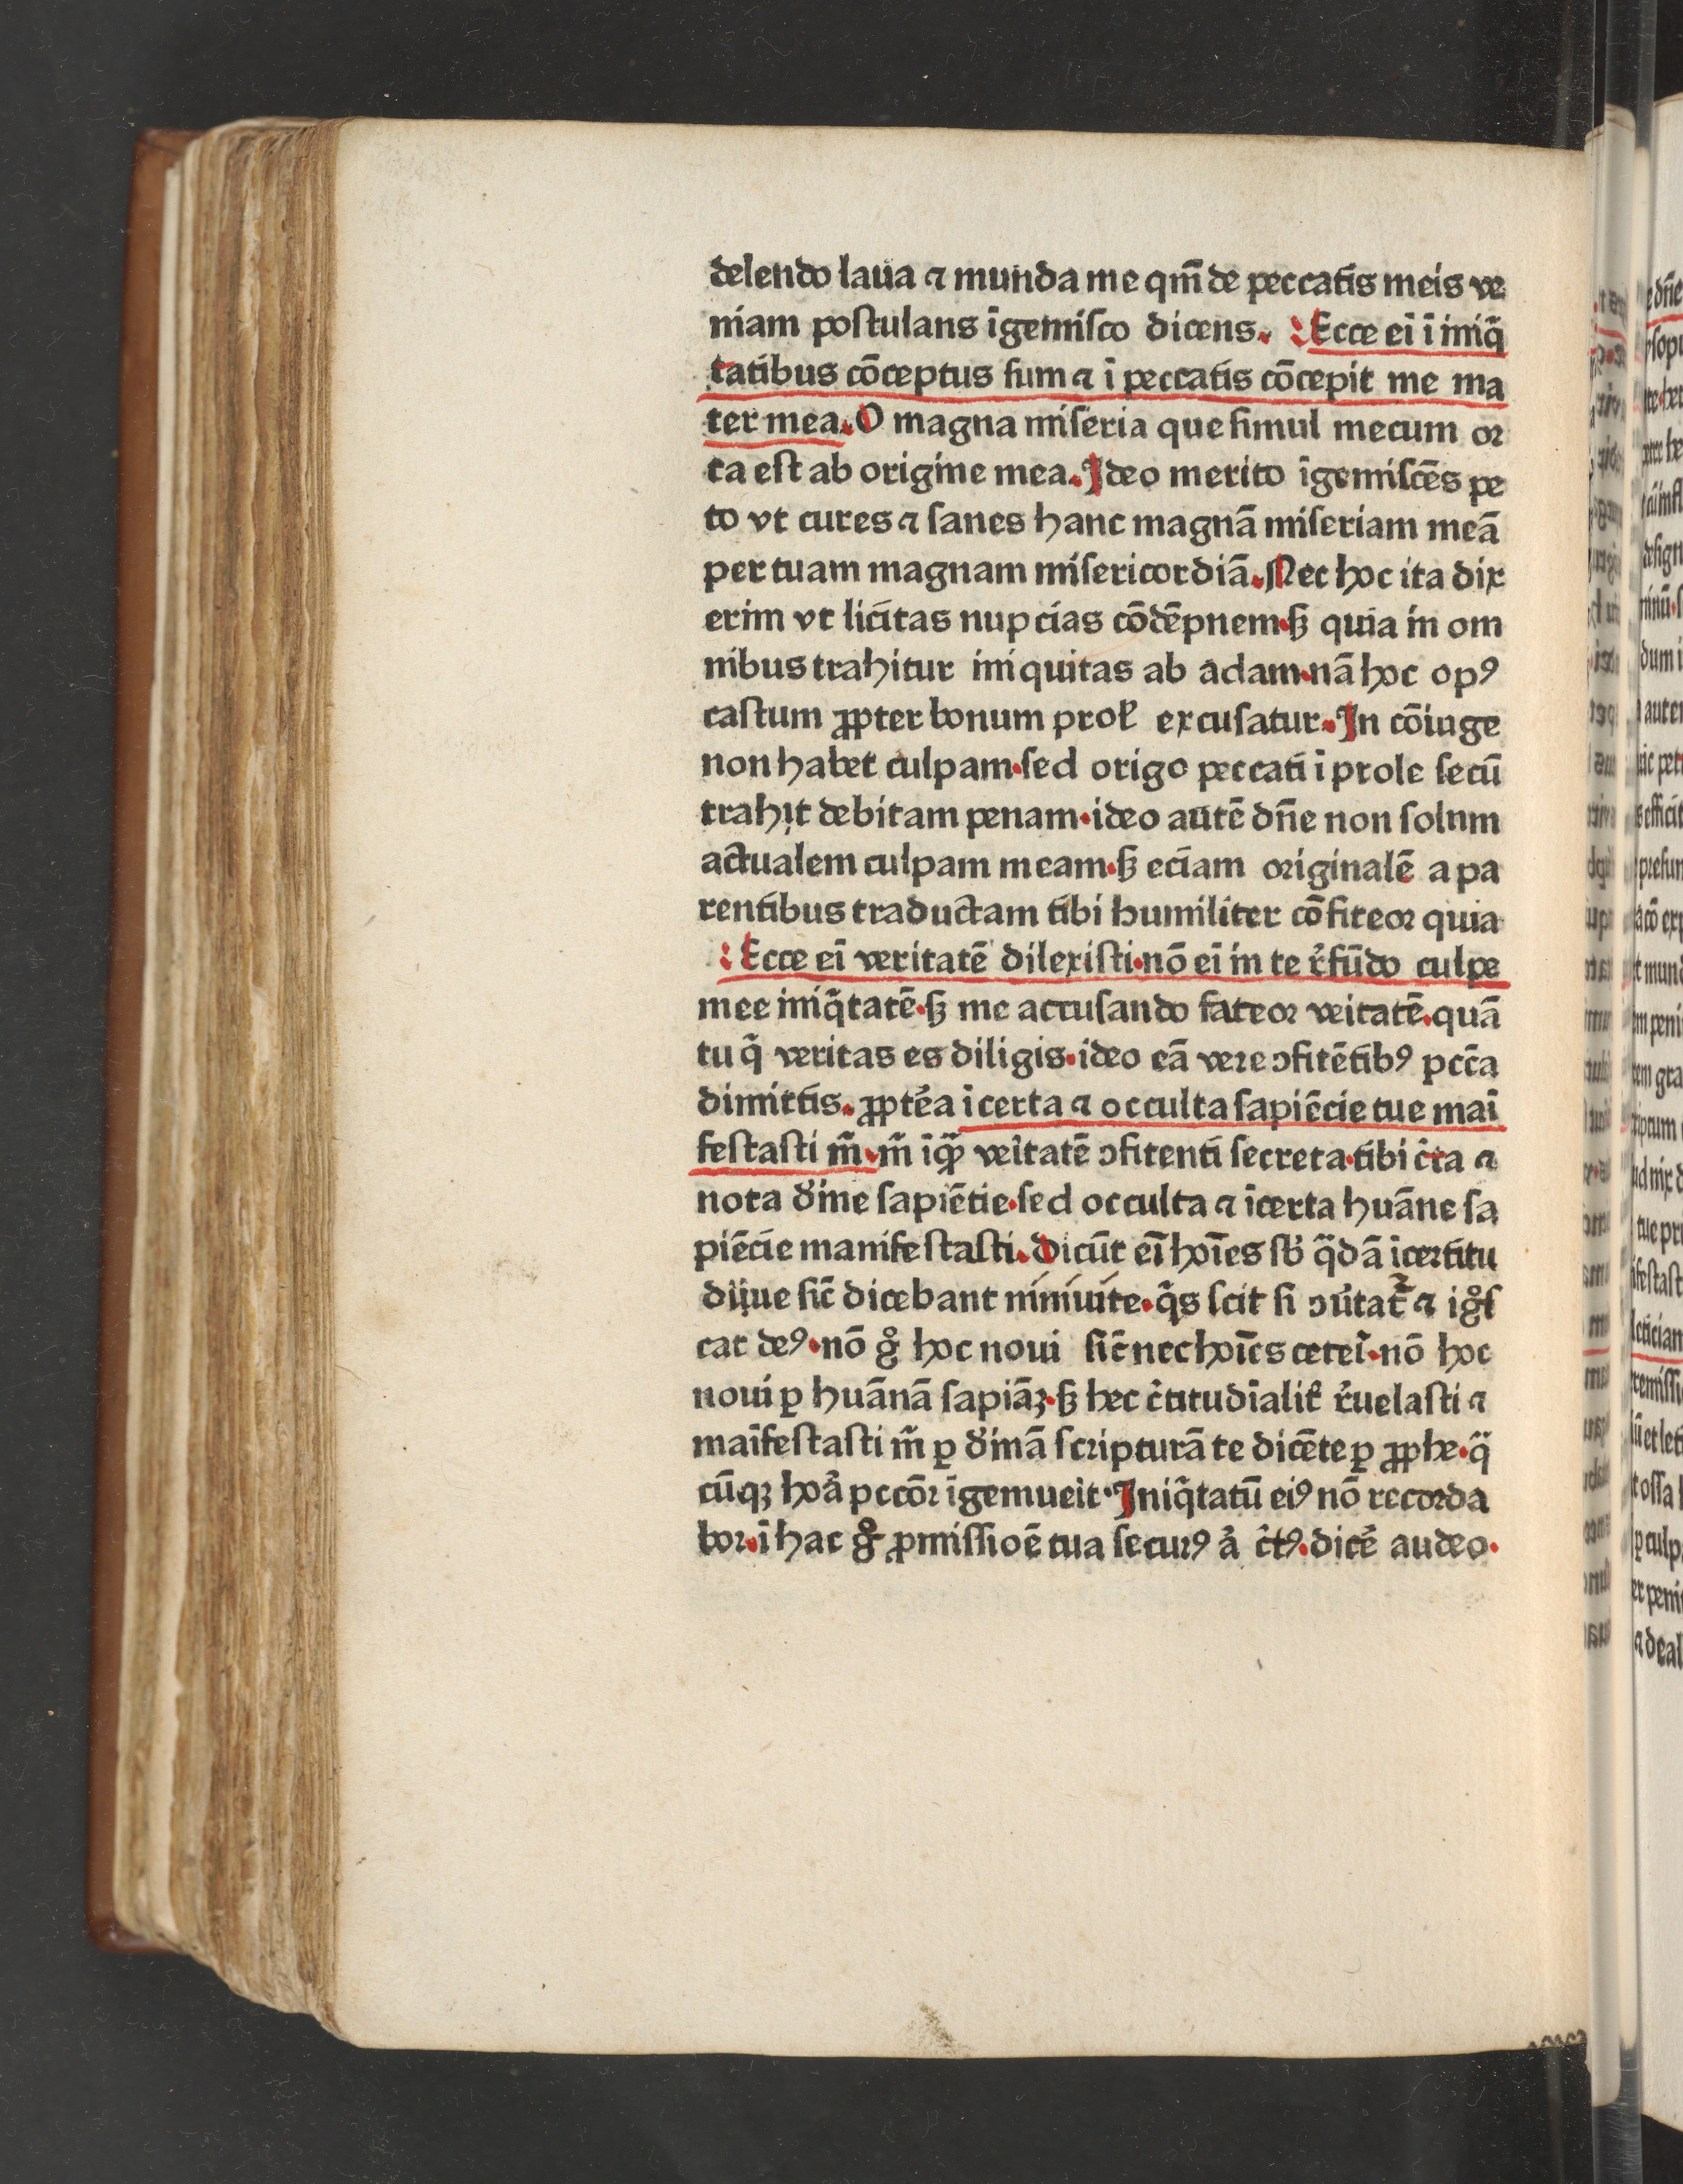 delendo laua ⁊ munda me qm̄ de peccatis meis ve
niam poſtulans īgemiſco dicens. Ecce eī ī iniq̄
tatibus cōceptus ſum ⁊ ī peccatis cōcepit me ma
ter mea. O magna miſeria que ſimul mecum oꝛ
ta eſt ab origine mea. Ideo merito īgemiſcēs pe
to vt cures ⁊ ſanes hanc magnā miſeriam meā
per tuam magnam miſericordiā. Nec hoc ita dix
erim vt licitas nupcias cōdēpnem·ſꝫ quia in om
nibus trahitur iniquitas ab adam·nā hoc opꝰ
caſtum ꝓpter bonum prol̄ excuſatur. In cōiuge
non habet culpam·ſed origo peccati ī prole ſecū
trahit debitam penam·ideo autē dn̄e non ſolnm
actualem culpam meam·ſꝫ eciam oꝛiginalē a pa
rentibus traductam tibi humiliter cōfiteoꝛ quia
Ecce eī veritatē dilexiſti·nō eī in te r̉fūdo culpe
mee iniq̄tatē·ſꝫ me accuſando fateoꝛ veitatē·quā
tu q̄ veritas es diligis·ideo eā vere ↄfitētibꝰ pcc̄a
dimittis. ꝓpte̾a īcerta ⁊ occulta ſapiēcie tue maī
feſtaſti m̄. m̄ īqꝫ veītatē ↄfitenti ſecreta·tibi c̾ta ⁊
nota di̾ine ſapiētie·ſed occulta ⁊ īcerta huāne ſa
piēcie manifeſtaſti. Dicūt eī hoīes ſb̾ q̄dā īcertitu
dijue ſic̄ dicebant niniuite·q̄s ſcit ſi ↄu̾tat̄ ⁊ igͦſ
cat deꝰ·nō gͦ hoc noui ſic̄ nec hoīes ceteī·nō hoc
noui ꝑ huānā ſapiāꝫ·ſꝫ hec c̾titudīalit̾ r̾uelaſti ⁊
maīfeſtaſti m̄ ꝑ di̾inā ſcripturā te dicēte ꝑ ꝓphe·q̄
cūqꝫ hoꝛa̾ pccōꝛ īgemueit·Iniq̄tatū eiꝰ nō recoꝛda
boꝛ·ī hac gͦ ꝓmiſſioē tua ſecurꝰ a̾ c̾tꝰ·dice̾ audeo·